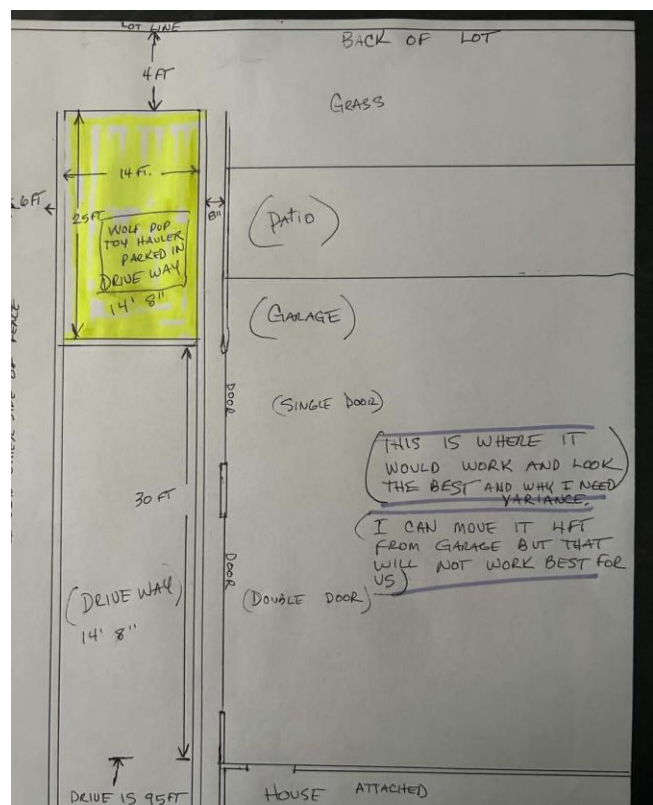 LOT LINE
BACK OF LOT
4 FT
GRASS
14 FT.
6FT
25FT
8"
WOLF PUP
TOY HAULER
PARKED IN
DRIVE WAY
14' 8"
(PATIO)
(GARAGE)
DOOR
(SINGLE DOOR)
(THIS IS WHERE IT
WOULD WORK AND LOOK
THE BEST AND WHY I NEED
VARIANCE.)
30 FT
(I CAN MOVE IT 4FT
FROM GARAGE BUT THAT
WILL NOT WORK BEST FOR
US)
DOOR
(DOUBLE DOOR)
(DRIVE WAY)
14' 8"
DRIVE IS 95FT
HOUSE ATTACHED
SIDE OF FENCE